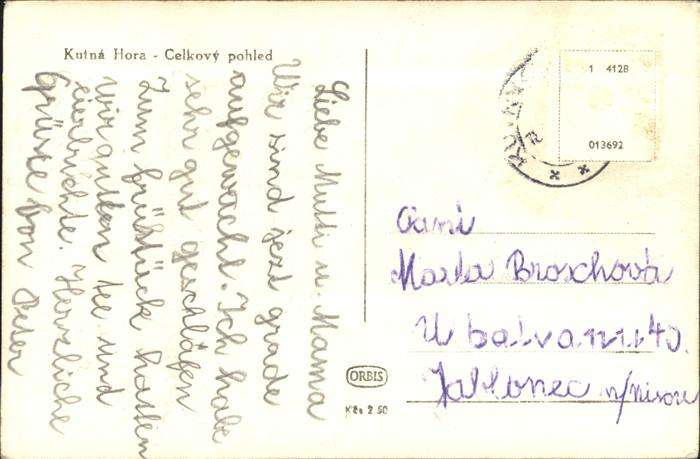 Kutná Hora - Celkový pohled
Liebe Mutti u. Mama
Wir sind jezt grade
aufgewacht. Ich habe
sehr gut geschlafen
Zum früstück hatten
wir guten tee und
Herzliche
Grüsse von Peter
1 4128
013692
Paní
Marta Broschová
U balvanu 40.
Jablonec n/Nisou
ORBIS
Kčs 2.50